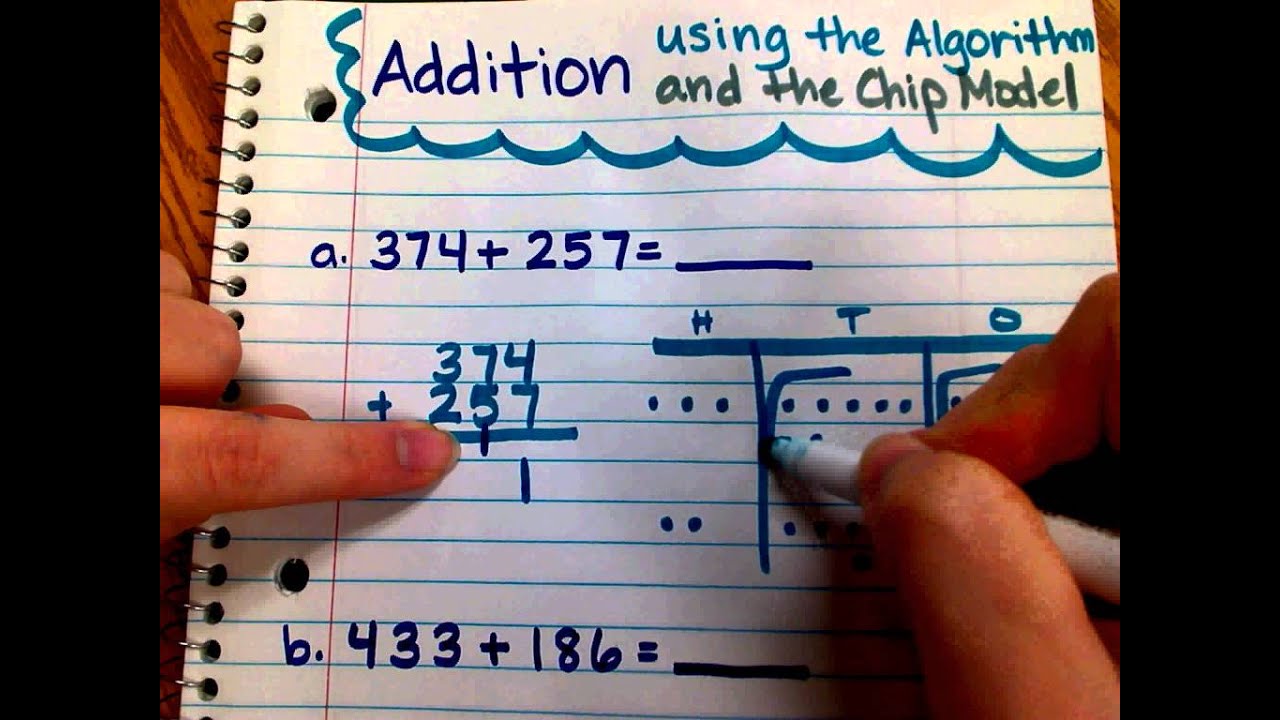 Addition using the Algorithm
and the Chip Model
a. 374 + 257 = ____
H T O
374
+ 257
1
1
b. 433 + 186 = ____